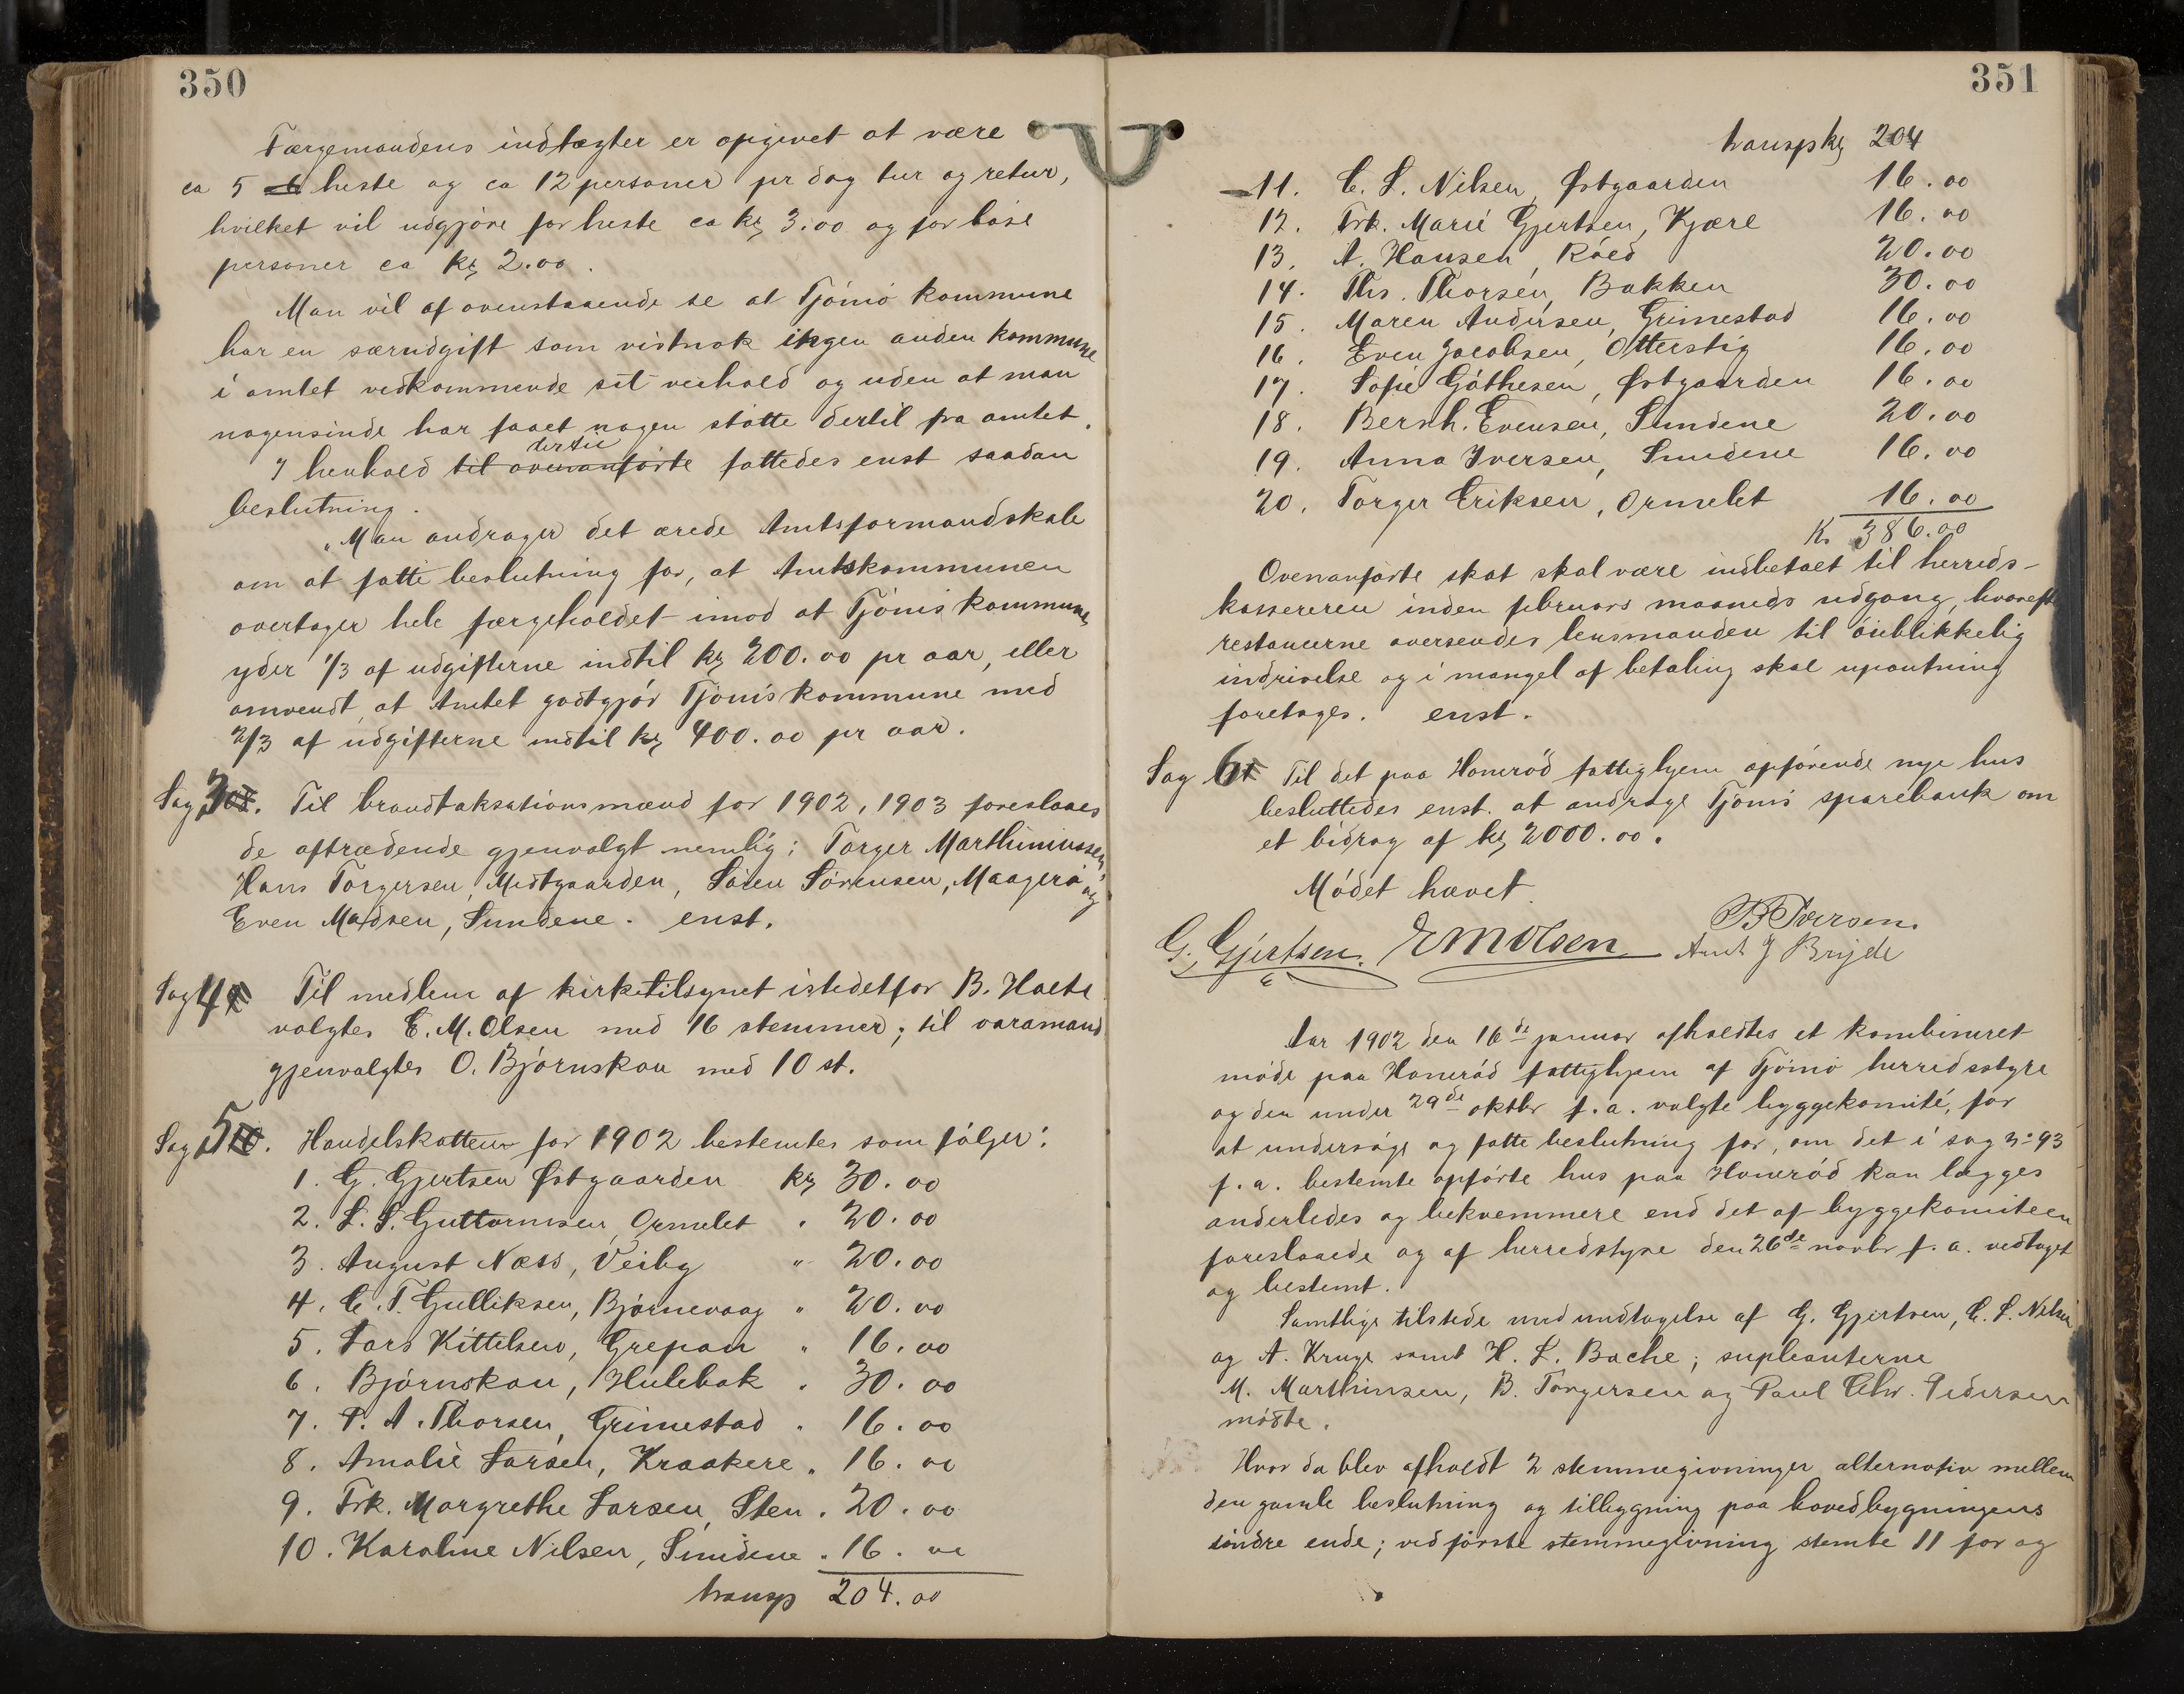 350
Færgemandens indtægter er opgivet at være
ca 5 heste og ca 12 personer pr dag tur og retur,
hvilket vil udgjøre for heste ca kr 3.00 og for løse
personer ca kr 2.00.
Man vil af ovenstaaende se at Tjømø kommune
har en særudgift som vistnok ingen anden kommune
i amtet vedkommende sit veihold og uden at man
nogensinde har faaet nogen støtte dertil fra amtet.
I henhold til ovenanførte dertil fattedes enst saadan
beslutning.
"Man andrager det ærede Amtsformandskab
om at fatte beslutning for, at Amtskommunen
overtager hele færgeholdet imod at Tjømø kommune
yder 1/3 af udgifterne indtil kr 200.00 pr aar, eller
omvendt, at Amtet godtgjør Tjømø kommune med
2/3 af udgifterne indtil kr 400.00 pr aar.
Sag 3. Til brandtaksationsmænd for 1902, 1903 foreslaaes
de aftrædende gjenvalgt nemlig: Torger Marthiniussen,
Hans Torgersen, Midtgaarden, Søren Sørensen, Maagerø og
Even Madsen, Sundene. enst.
Sag 4 Til medlem af kirketilsynet istedetfor B. Holte
valgtes E. M. Olsen med 16 stemmer; til varamand
gjenvalgtes O. Bjørnskau med 10 st.
Sag 5. Handelskatten for 1902 bestemtes som følger:
1. G. Gjertsen Østgaarden kr 30.00
2. L. S. Guttormsen, Ormelet " 20.00
3. August Næss, Veiby " 20.00
4. C. T. Gulliksen, Bjørnevaag " 20.00
5. Lars Kittelsen, Grepan " 16.00
6. Bjørnskau, Hulebak " 30.00
7. P. A. Thorsen, Grimestad " 16.00
8. Amalie Larsen, Kraakere " 16.00
9. Frk. Margrethe Larsen, Sten " 20.00
10. Karoline Nilsen, Sundene " 16.00
transp 204.00
351
transp kr 204
11. C. L. Nilsen, Østgaarden 16.00
12. Frk. Marie Gjertsen, Kjære 16.00
13. A. Hansen, Røed 20.00
14. Ths. Thorsen, Bakken 30.00
15. Maren Andersen, Grimestad 16.00
16. Even Jacobsen, Otterstig 16.00
17. Sofie Gøthesen, Østgaarden 16.00
18. Bernh. Evensen, Sundene 20.00
19. Anna Iversen, Sundene 16.00
20. Torger Eriksen, Ormelet 16.00
Kr 386.00
Ovenanførte skat skal være indbetalt til herreds-
kassereren inden februars maaneds udgang, hvorefter
restancerne oversendes lensmanden til øieblikkelig
indrivelse og i mangel af betaling skal udpantning
foretages. enst.
Sag 6 Til det paa Honerød fattighjem opførende nye hus
besluttedes enst. at andrage Tjømø sparebank om
et bidrag af kr 2000.00.
Mødet hævet.
G. Gjertsen. E M Olsen B Iversen.
Amt J Bryde
Aar 1902 den 16de januar afholdtes et kombineret
møde paa Honerød fattighjem af Tjømø herredsstyre
og den under 29de oktbr f.a. valgte byggekomité, for
at undersøge og fatte beslutning for, om det i sag no 93
f.a. bestemte opførte hus paa Honerød kan lægges
anderledes og bekvemmere end det af byggekomiteen
foreslaaede og af herredstyre den 26de novbr f.a. vedtaget
og bestemt.
Samtlige tilstede med undtagelse af G. Gjertsen, C. L. Nilsen
og A. Kruge samt H. L. Bache; supleanterne
M. Marthinsen, B. Torgersen og Paul Chr. Pedersen
mødte.
Hvor da blev afholdt 2 stemmegivninger alternativ mellem
den gamle beslutning og tilbygning paa hovedbygningens
søndre ende; ved første stemmegivning stemte 11 for og